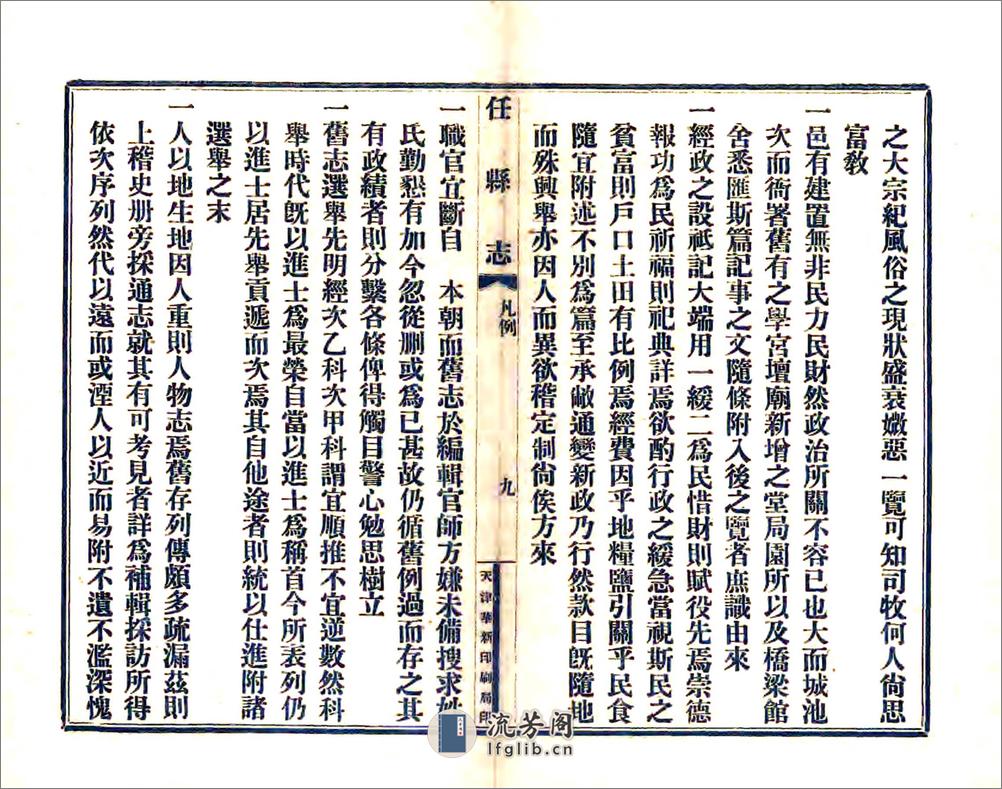 之大宗紀風俗之現狀盛衰媺惡一覽可知司牧何人尙思
富敎
一邑有建置無非民力民財然政治所關不容已也大而城池
次而衙署舊有之學宮壇廟新增之堂局園所以及橋梁館
舍悉匯斯篇記事之文隨條附入後之覽者庶識由來
一經政之設祗記大端用一緩二爲民惜財則賦役先焉崇德
報功爲民祈福則祀典詳焉欲酌行政之緩急當視斯民之
貧富則戶口土田有比例焉經費因乎地糧鹽引關乎民食
隨宜附述不別爲篇至承敝通變新政乃行然款目旣隨地
而殊興舉亦因人而異欲稽定制尙俟方來
任縣志
凡例
九
天津華新印刷局印
一職官宜斷自 本朝而舊志於編輯官師方嫌未備搜求姓
氏勤懇有加今忽從删或爲已甚故仍循舊例過而存之其
有政績者則分繫各條俾得觸目警心勉思樹立
一舊志選舉先明經次乙科次甲科謂宜順推不宜逆數然科
舉時代旣以進士爲最榮自當以進士爲稱首今所表列仍
以進士居先舉貢遞而次焉其自他途者則統以仕進附諸
選舉之末
一人以地生地因人重則人物志焉舊存列傳頗多疏漏茲則
上稽史册旁採通志就其有可考見者詳爲補輯採訪所得
依次序列然代以遠而或湮人以近而易附不遺不濫深愧
流芳阁
lfglib.cn